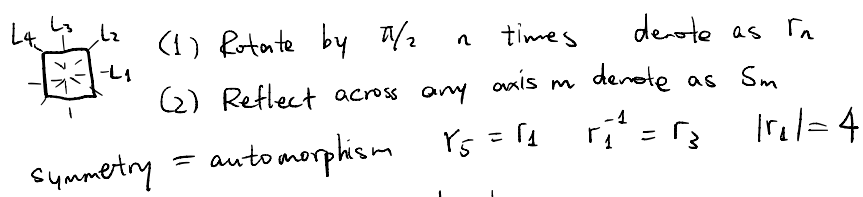 L4 L3 L2 (1) Rotate by π/2 n times denote as rn
-L1 (2) Reflect across any axis m denote as Sm
symmetry = automorphism r5 = r1 r1^-1 = r3 |r1| = 4